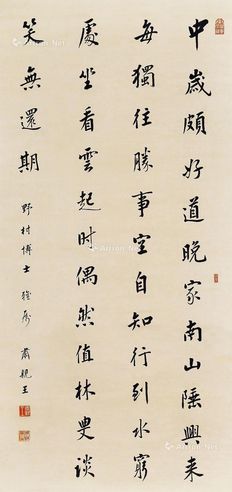 中歲頗好道晚家南山陲興来
每獨往勝事空自知行到水窮
處坐看雲起时偶然值林叟談
笑無還期
野村博士 雅屬 肅親王